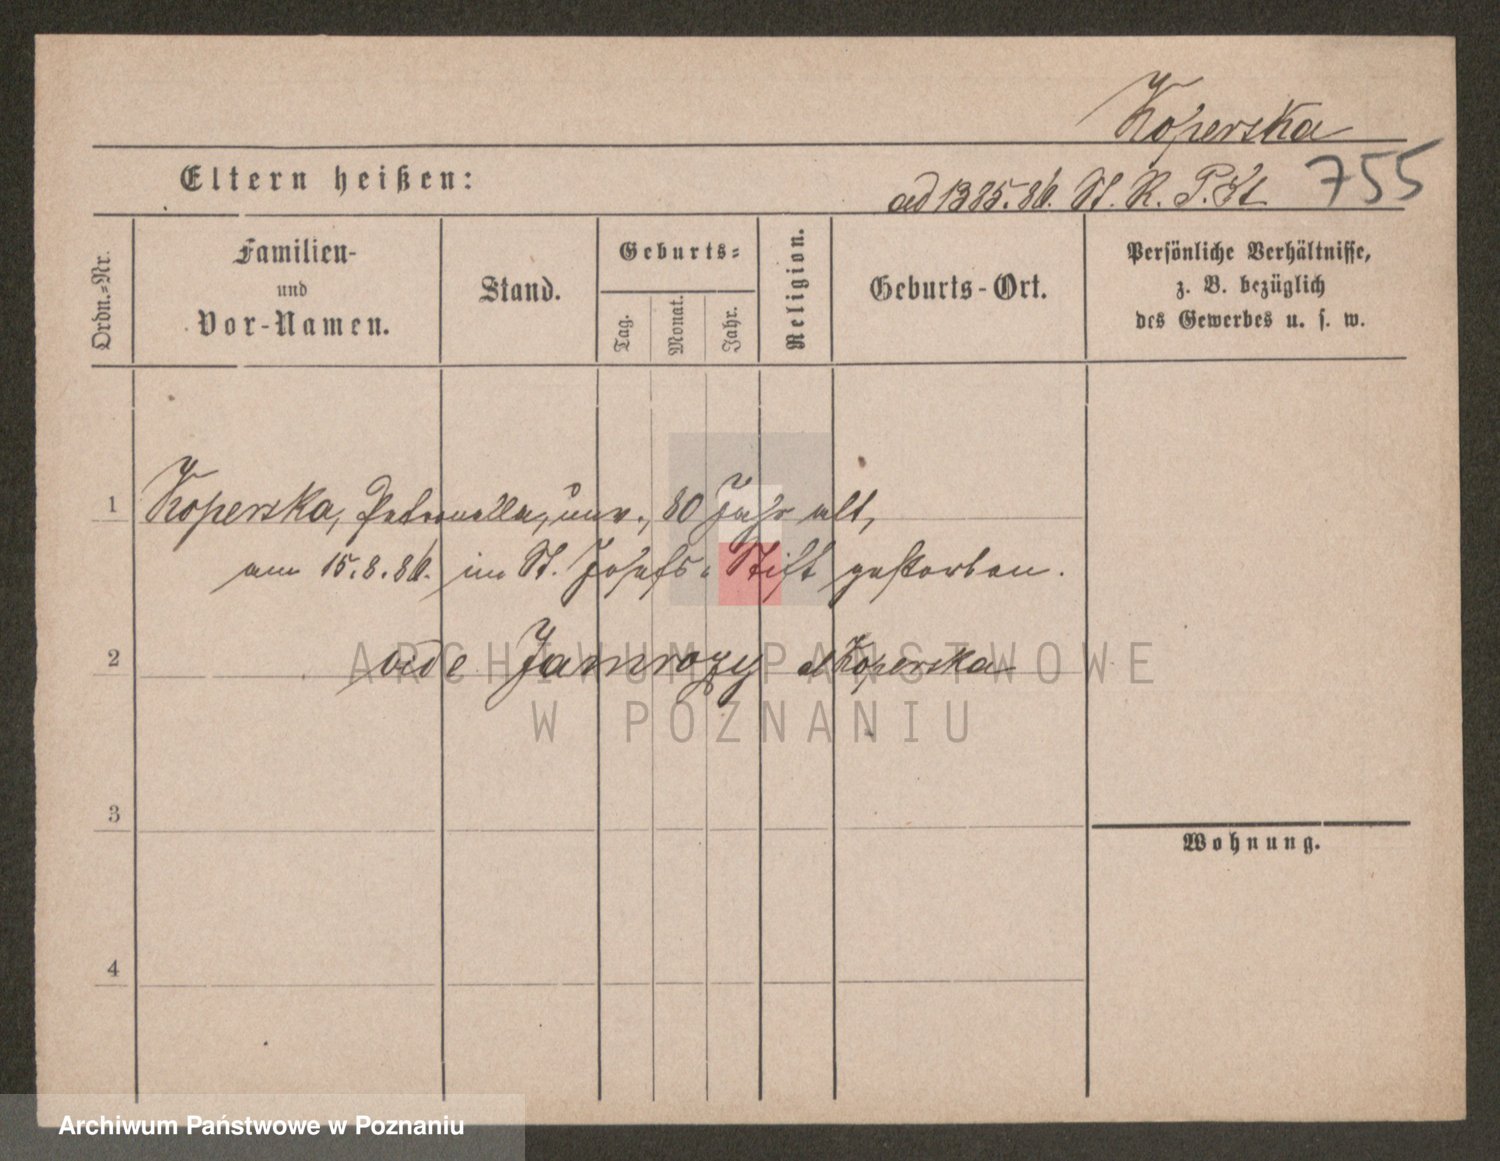 Koperska
Eltern heißen:
ad 1385.86. St. R. P. St
755
Ordn.=Nr.
Familien-
und
Vor-Namen.
Stand.
Geburts=
Tag.
Monat.
Jahr.
Religion.
Geburts-Ort.
Persönliche Verhältnisse,
z. B. bezüglich
des Gewerbes u. s. w.
1
Koperska, Petronella, unv., 80 Jahr alt,
am 15.8.86. im St. Josefs-Stift gestorben.
2
vide Jamrozy Koperska
3
Wohnung.
4
ARCHIWUM PAŃSTWOWE
W POZNANIU
Archiwum Państwowe w Poznaniu